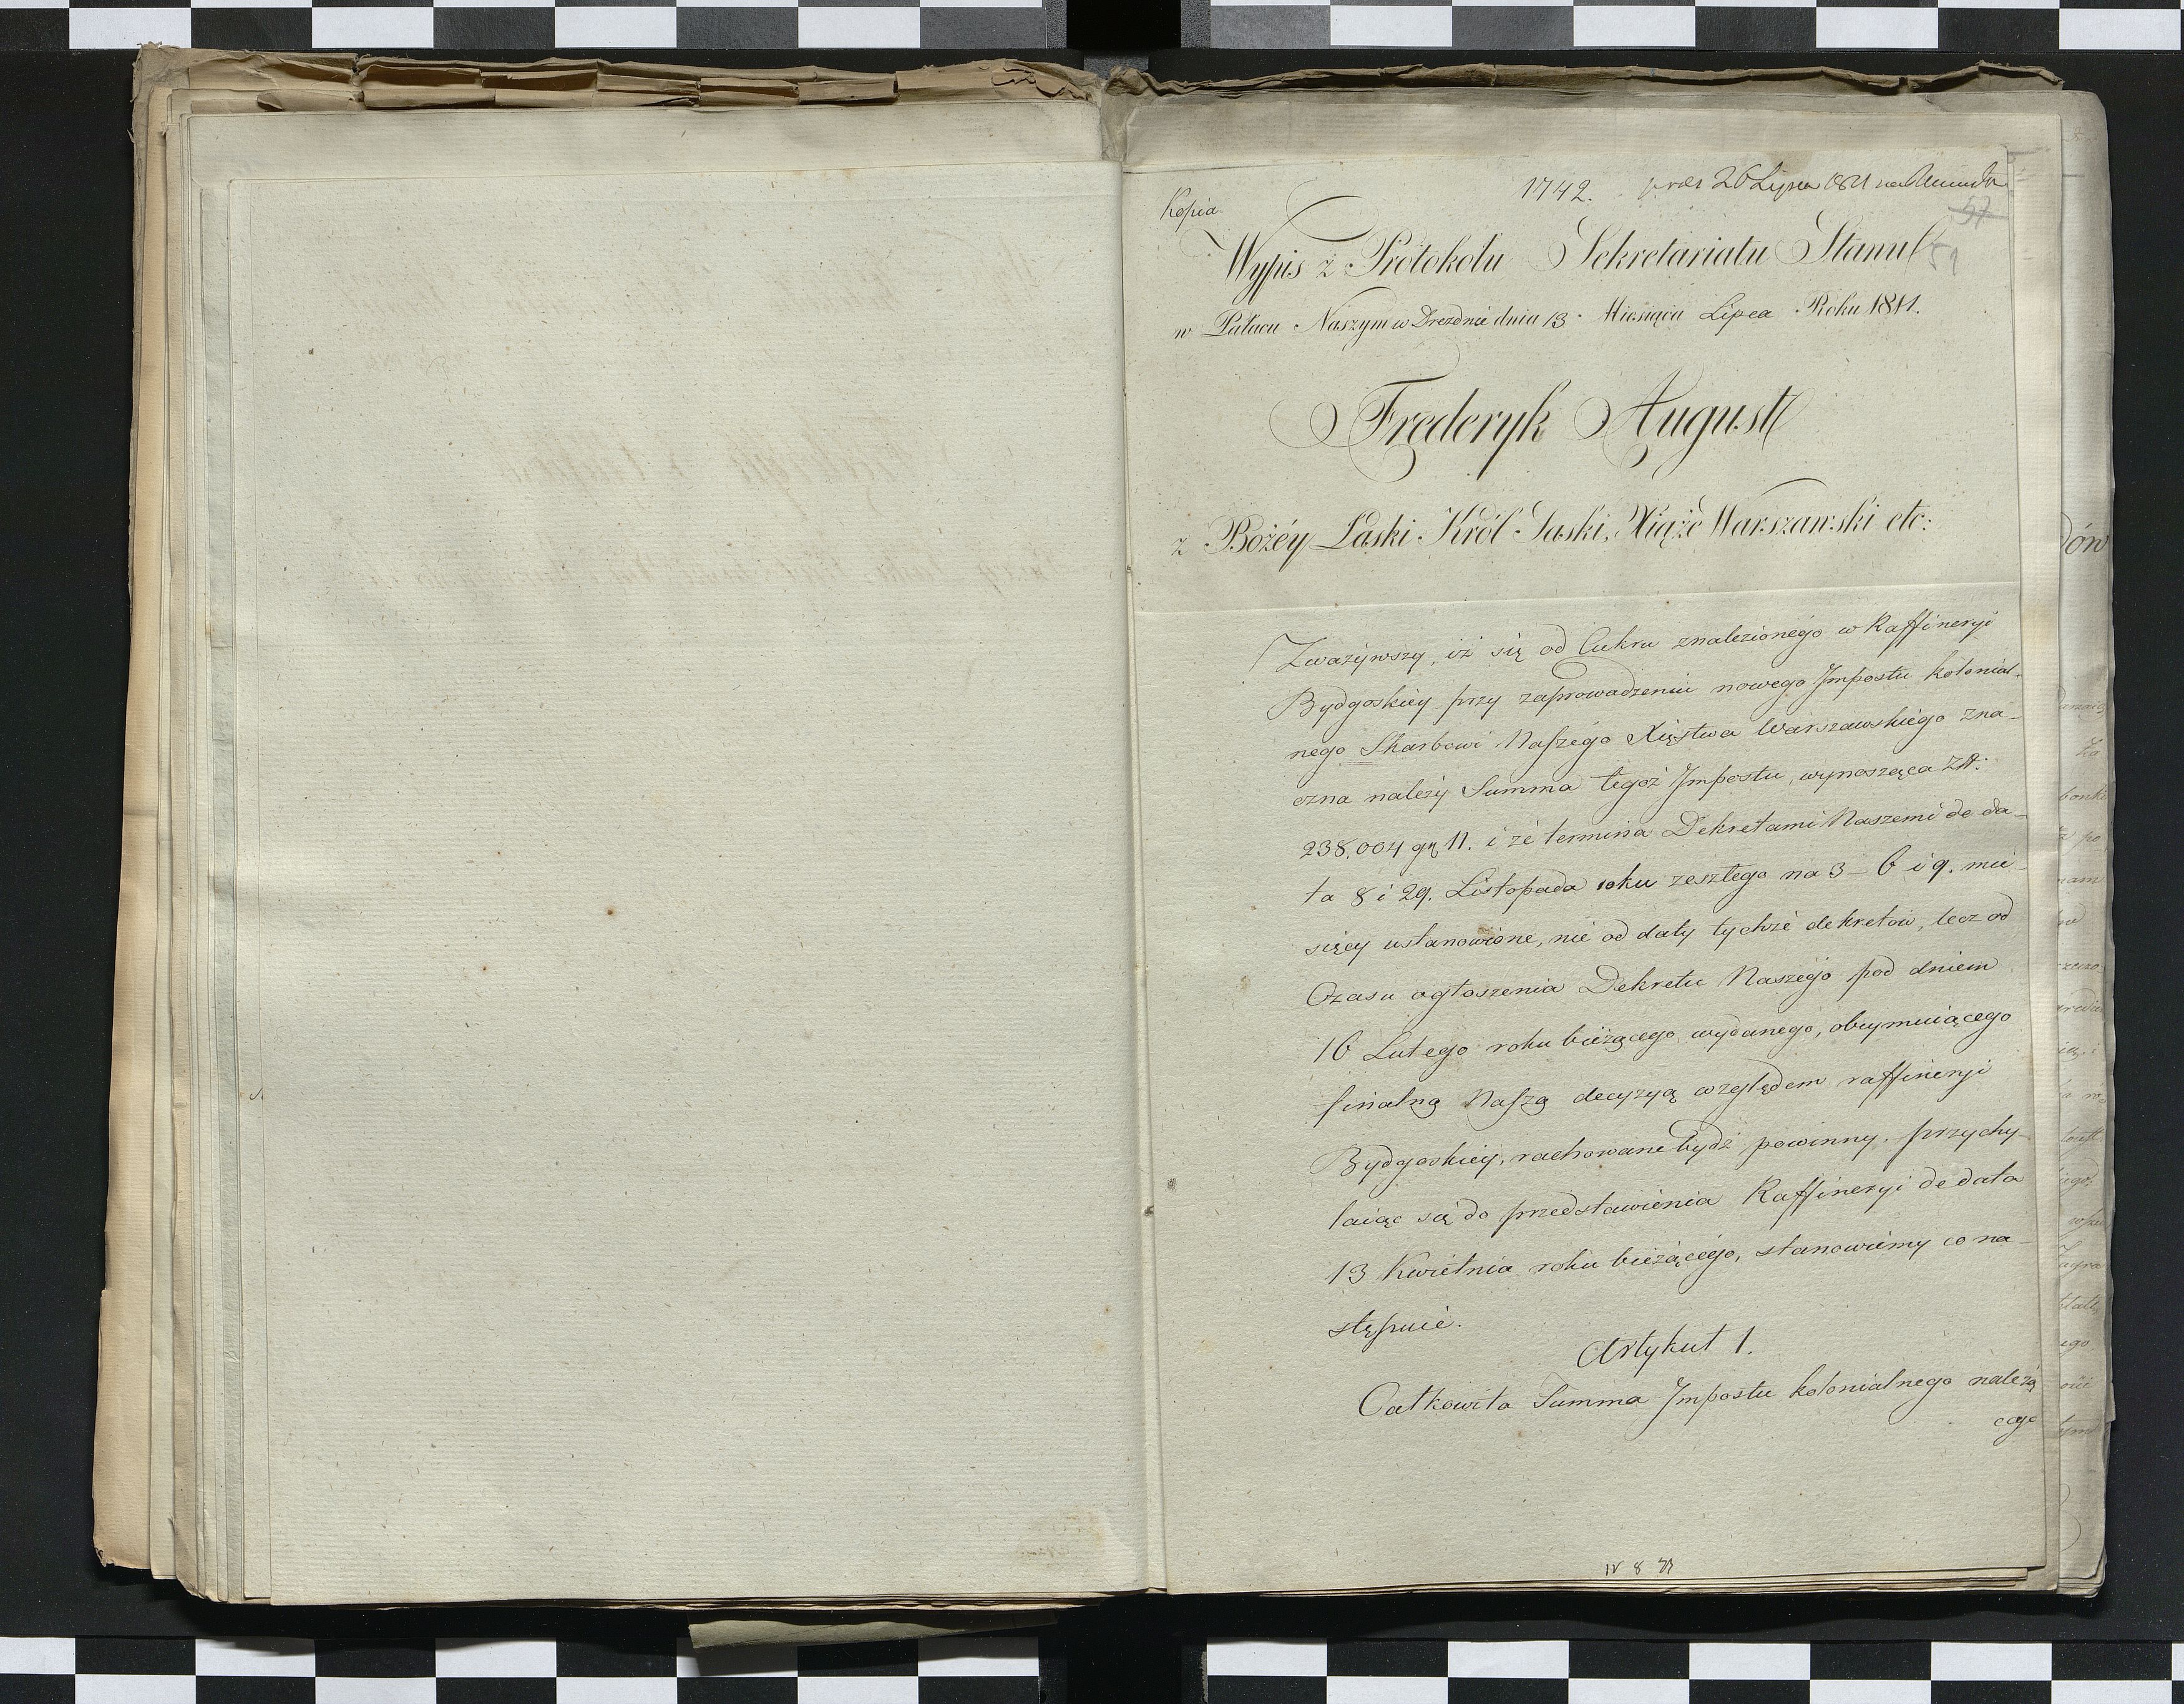 Kopia
1742. 26 Lipca 1811
57
59
Wypis z Protokołu Sekretariatu Stanu
w Pałacu Naszym w Dreznie dnia 13 Miesiąca Lipca Roku 1811.
Frederyk August
z Bożéy Łaski Król Saski, Xiąże Warszawski etc:
Zważywszy, iż się od Cukru znalezionego w Raffineryi
Bydgoskiey przy zaprowadzeniu nowego Impostu kolonial-
nego Skarbowi Naszego Xięstwa Warszawskiego zna-
czna należy Summa tegoż Impostu, wynosząca Złł:
238,004 gr 11. i że termina Dekretami Naszemi de da-
ta 8 i 29. Listopada roku zeszłego na 3 – 6 i 9. mie-
sięcy ustanowione, nie od daty tychże dekretow, lecz od
Czasu ogłoszenia Dekretu Naszego pod dniem
16 Lutego roku bieżącego wydanego, obeymuiącego
finalną Naszą decyzyą względem raffineryi
Bydgoskiey, rachowane bydź powinny. przychy-
laiąc się do przedstawienia Raffineryi de data
13 Kwietnia roku bieżącego, stanowiemy co na-
stępuie.
Artykuł 1.
Całkowita Summa Impostu kolonialnego należą
cego
IV 8 77